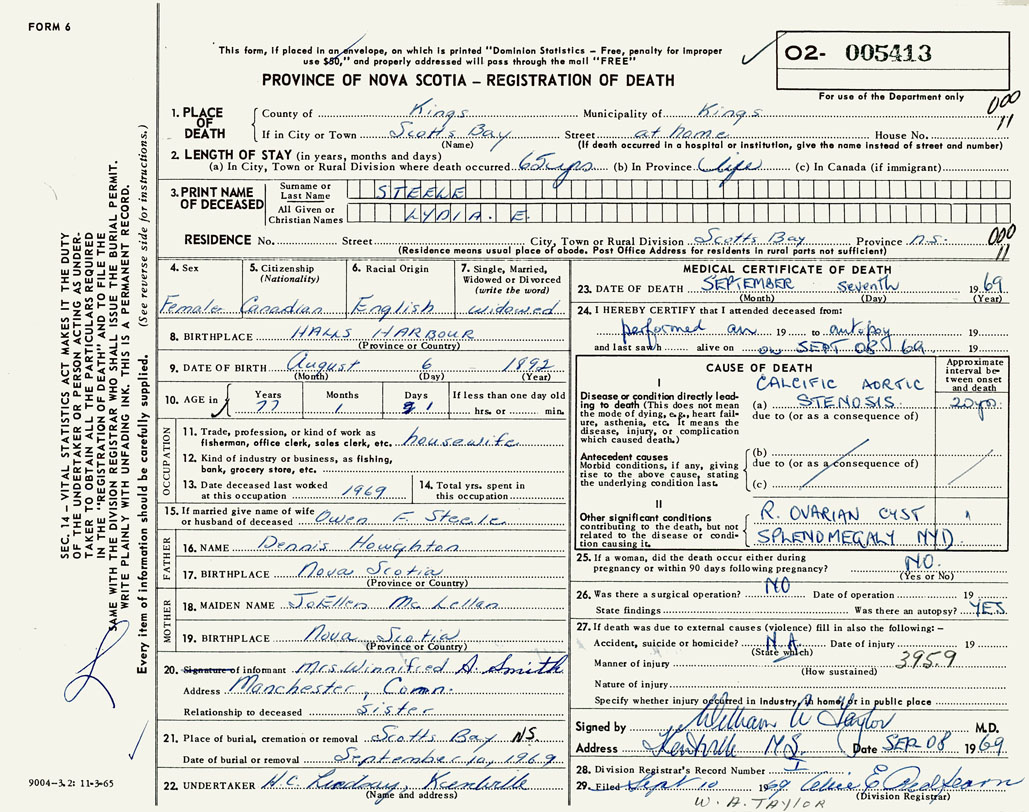 FORM 6
This form, if placed in an envelope, on which is printed "Dominion Statistics – Free, penalty for improper
use $50," and properly addressed will pass through the mail "FREE"
O2- 005413
PROVINCE OF NOVA SCOTIA – REGISTRATION OF DEATH
For use of the Department only
000
11
1. PLACE OF DEATH County of Kings Municipality of Kings
If in City or Town Scotts Bay Street at home House No.
(Name) (If death occurred in a hospital or institution, give the name instead of street and number)
2. LENGTH OF STAY (in years, months and days)
(a) In City, Town or Rural Division where death occurred 65 yrs (b) In Province Life (c) In Canada (if immigrant)
3. PRINT NAME OF DECEASED Surname or Last Name STEELE
All Given or Christian Names LYDIA. E.
RESIDENCE No. Street City, Town or Rural Division Scotts Bay Province N.S. 000
(Residence means usual place of abode. Post Office Address for residents in rural parts not sufficient) 11
4. Sex 5. Citizenship (Nationality) 6. Racial Origin 7. Single, Married, Widowed or Divorced (write the word)
Female Canadian English widowed
8. BIRTHPLACE HALLS HARBOUR
(Province or Country)
9. DATE OF BIRTH August 6 1892
(Month) (Day) (Year)
10. AGE in Years Months Days If less than one day old
77 1 1 hrs. or min.
OCCUPATION
11. Trade, profession, or kind of work as
fisherman, office clerk, sales clerk, etc. housewife
12. Kind of industry or business, as fishing,
bank, grocery store, etc.
13. Date deceased last worked at this occupation 1969 14. Total yrs. spent in this occupation
15. If married give name of wife
or husband of deceased Owen F. Steele
FATHER
16. NAME Dennis Houghton
17. BIRTHPLACE Nova Scotia
(Province or Country)
MOTHER
18. MAIDEN NAME JoEllen McLellan
19. BIRTHPLACE Nova Scotia
(Province or Country)
20. Signature of informant Mrs. Winnifred A. Smith
Address Manchester, Conn.
Relationship to deceased Sister
21. Place of burial, cremation or removal Scotts Bay N.S.
Date of burial or removal September 10, 1969
22. UNDERTAKER H.C. Lindsay, Kentville
(Name and address)
MEDICAL CERTIFICATE OF DEATH
23. DATE OF DEATH SEPTEMBER seventh 1969
(Month) (Day) (Year)
24. I HEREBY CERTIFY that I attended deceased from:
performed an 19 to autopsy 19
and last saw h alive on on SEPT 08 69 19
CAUSE OF DEATH
Approximate interval between onset and death
I
Disease or condition directly leading to death (This does not mean the mode of dying, e.g., heart failure, asthenia, etc. It means the disease, injury, or complication which caused death.)
CALCIFIC AORTIC
(a) STENOSIS. 20 yrs
due to (or as a consequence of)
Antecedent causes
Morbid conditions, if any, giving rise to the above cause, stating the underlying condition last.
(b)
due to (or as a consequence of)
(c)
II
Other significant conditions contributing to the death, but not related to the disease or condition causing it.
R. OVARIAN CYST
SPLENOMEGALY NYD
25. If a woman, did the death occur either during
pregnancy or within 90 days following pregnancy? NO.
(Yes or No)
26. Was there a surgical operation? NO Date of operation 19
State findings Was there an autopsy? YES
27. If death was due to external causes (violence) fill in also the following:–
Accident, suicide or homicide? N.A. Date of injury 19
(State which)
Manner of injury 395.9
(How sustained)
Nature of injury
Specify whether injury occurred in Industry, in home, or in public place
Signed by William A Taylor M.D.
Address Kentville N.S. Date SEP 08 1969
28. Division Registrar's Record Number I
29. Filed Sept 10 1969
(Division Registrar)
W. A. TAYLOR
SEC. 14 – VITAL STATISTICS ACT MAKES IT THE DUTY
OF THE UNDERTAKER OR PERSON ACTING AS UNDER-
TAKER TO OBTAIN ALL THE PARTICULARS REQUIRED
IN THE "REGISTRATION OF DEATH" AND TO FILE THE
SAME WITH THE DIVISION REGISTRAR WHO SHALL ISSUE THE BURIAL PERMIT.
WRITE PLAINLY WITH UNFADING INK. THIS IS A PERMANENT RECORD.
Every item of information should be carefully supplied. (See reverse side for instructions.)
9004-3.2: 11-3-65